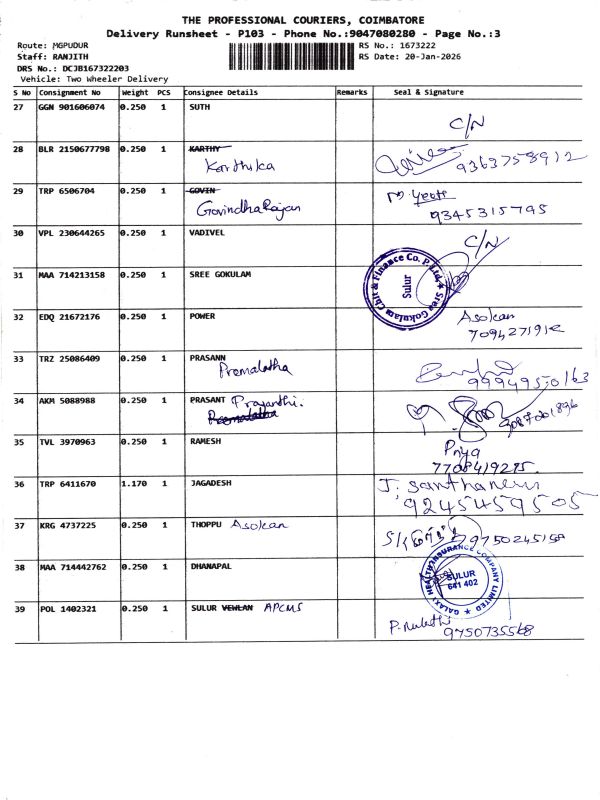 THE PROFESSIONAL COURIERS, COIMBATORE
Delivery Runsheet - P103 - Phone No.:9047080280 - Page No.:3
Route: MGPUDUR
RS No.: 1673222
Staff: RANJITH
RS Date: 20-Jan-2026
DRS No.: DCJB167322203
Vehicle: Two Wheeler Delivery
S No Consignment No Weight PCS Consignee Details Remarks Seal & Signature
27 GGN 901606074 0.250 1 SUTH
C/N
28 BLR 2150677798 0.250 1 KARTHY
Karthika 9363758912
29 TRP 6506704 0.250 1 GOVIN
GovindhaRajan 9345315795
30 VPL 230644265 0.250 1 VADIVEL C/N
31 MAA 714213158 0.250 1 SREE GOKULAM
Sree Gokulam Chit & Finance Co. P Ltd.
Sulur
32 EDQ 21672176 0.250 1 POWER Asokan
7094271912
33 TRZ 25086409 0.250 1 PRASANN
Premalatha 9994950163
34 AKM 5088988 0.250 1 PRASANT Prajanthi.
Premalatha
35 TVL 3970963 0.250 1 RAMESH Priya
7708419275.
36 TRP 6411670 1.170 1 JAGADESH
9245459505
37 KRG 4737225 0.250 1 THOPPU Asokan
9750245158
38 MAA 714442762 0.250 1 DHANAPAL
GALAXY HEALTH INSURANCE COMPANY LIMITED
SULUR
641 402
39 POL 1402321 0.250 1 SULUR VEWLAN APCMS
9750735568